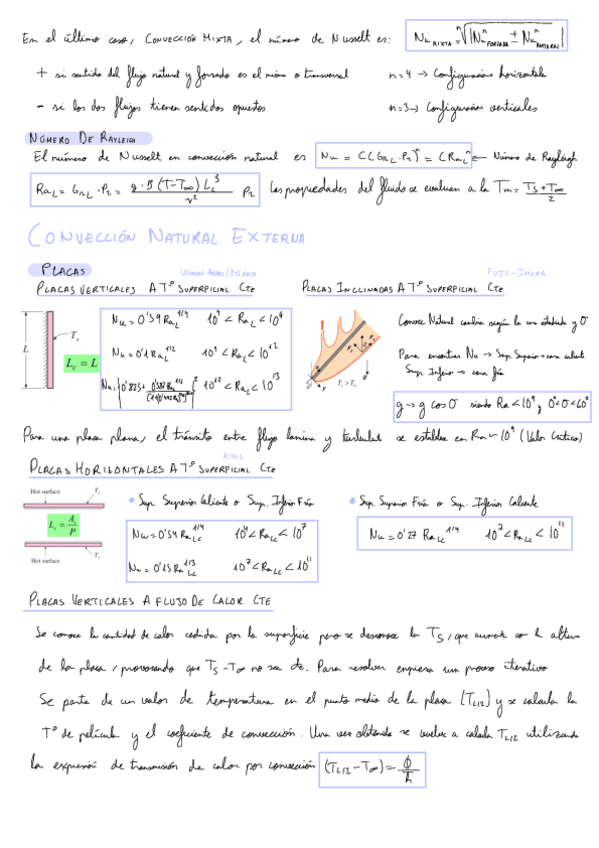 En el último caso, CONVECCIÓN MIXTA, el número de Nusselt es: Nu MIXTA = ⁿ√|Nuⁿ FORZADA ± Nuⁿ NATURAL|
+ si sentido del flujo natural y forzado es el mismo o transversal n=4 → Configuraciones horizontales
- si los dos flujos tienen sentidos opuestos n=3 → Configuración verticales
NÚMERO DE RAYLEIGH
El número de Nusselt en convección natural es Nu = C(Gr_L · Pr)ⁿ = C Ra_Lⁿ ← Número de Rayleigh
Ra_L = Gr_L · Pr = g·β(T-T∞) L_c³ / ν² Pr Las propiedades del fluido se evaluan a la Tm = Ts+T∞ / 2
CONVECCIÓN NATURAL EXTERNA
PLACAS
PLACAS VERTICALES A Tº SUPERFICIAL CTE
L
Ts
Lc = L
Nu = 0'59 Ra_L^1/4 10⁴ < Ra_L < 10⁹
Nu = 0'1 Ra_L 10¹²
10¹² < Ra_L < 10¹³
PLACAS INCLINADAS A Tº SUPERFICIAL CTE
Convecc Natural cambia según la cara estudiada y θ
Para encontrar Nu → Sup. Superior = cara caliente
Sup. Inferior → cara fría
g → g cos θ siendo Ra < 10⁹ y 0°<θ<60°
Ts > T∞
Para una placa plana, el tránsito entre flujo laminar y turbulento se establece en Ra ~ 10⁹ (Valor Crítico)
PLACAS HORIZONTALES A Tº SUPERFICIAL CTE
Hot surface Ts
Lc = As / p
Ts
Hot surface
• Sup. Superior Caliente o Sup. Inferior Fría
Nu = 0'54 Ra_Lc^1/4 10⁴ < Ra_Lc < 10⁷
Nu = 0'15 Ra_Lc^1/3 10⁷ < Ra_Lc < 10¹¹
• Sup. Superior Fría o Sup. Inferior Caliente
Nu = 0'27 Ra_Lc^1/4 10⁷ < Ra_Lc < 10¹¹
PLACAS VERTICALES A FLUJO DE CALOR CTE
Se conoce la cantidad de calor cedida por la superficie pero se desconoce la Ts, que aumenta con la altura
de la placa, provocando que Ts-T∞ no sea cte. Para resolver empieza un proceso iterativo
Se parte de un valor de temperatura en el punto medio de la placa (T_L/2) y se calcula la
Tº de película y el coeficiente de convección. Una vez obtenido se vuelve a calcula T_L/2 utilizando
la expresión de transmisión de calor por convección (T_L/2 - T∞) = φ / h